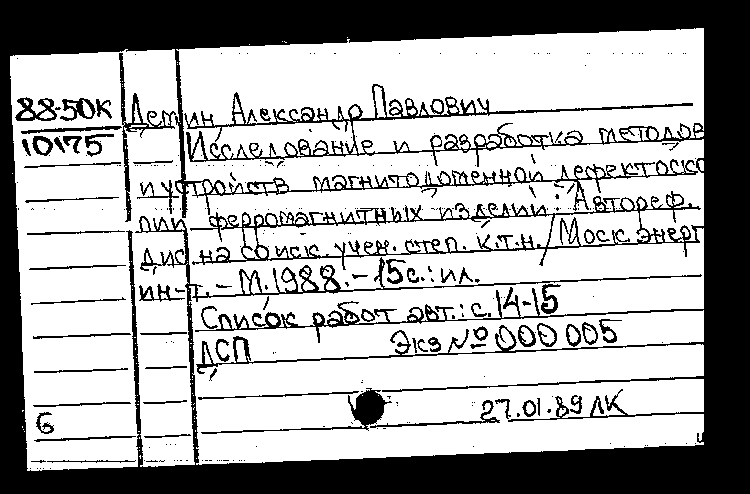 88-50К Демин, Александр Павлович
10175 Исследование и разработка методов
и устройств магнитодоменной дефектоско
пии ферромагнитных изделий: Автореф.
дис. на соиск. учен. степ. к.т.н. / Моск. энерг
ин-т. - М. 1988. - 15 с.: ил.
Список работ авт.: с. 14-15
ДСП Экз № 000 005
6 27.01.89 ЛК